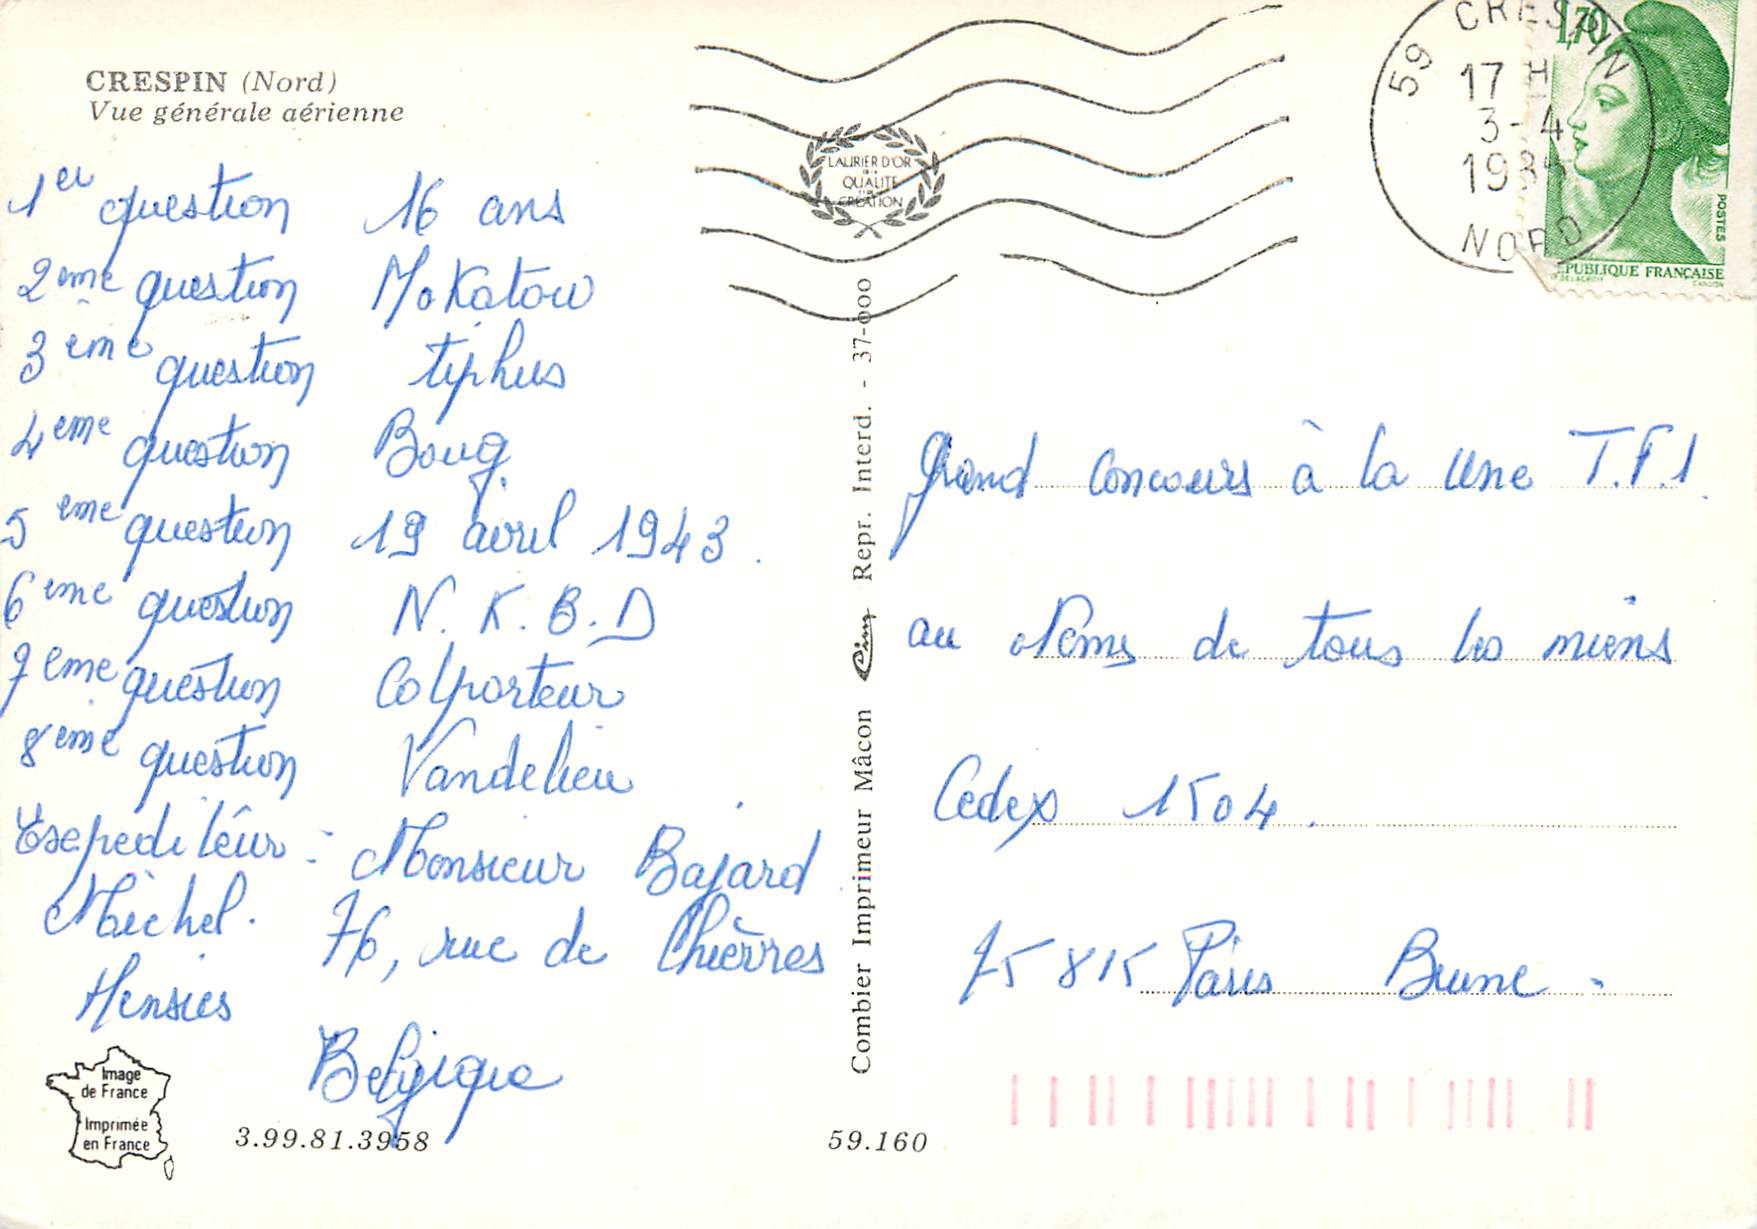 CRESPIN (Nord)
Vue générale aérienne
1er question 16 ans
2eme question Mokotow
3ème question tiphus
4eme question Boug
5eme question 19 avril 1943.
6eme question N.K.B.D
7eme question Colporteur
8eme question Vandelieu
Exepediteur : Monsieur Bajard
Michel. 76, rue de Chièvres
Hensies
Belgique
Image
de France
Imprimée
en France
3.99.81.3958
59.160
Combier Imprimeur Mâcon Cim Repr. Interd. - 37-000
LAURIER D'OR
DE LA
QUALITÉ
CRÉATION
59 CRESPIN
17 H
3-4
NORD
1,70
POSTES
REPUBLIQUE FRANÇAISE
Grand concours à la une T.F.1.
au Noms de tous les miens
Cedex 1504.
75815 Paris Brune.